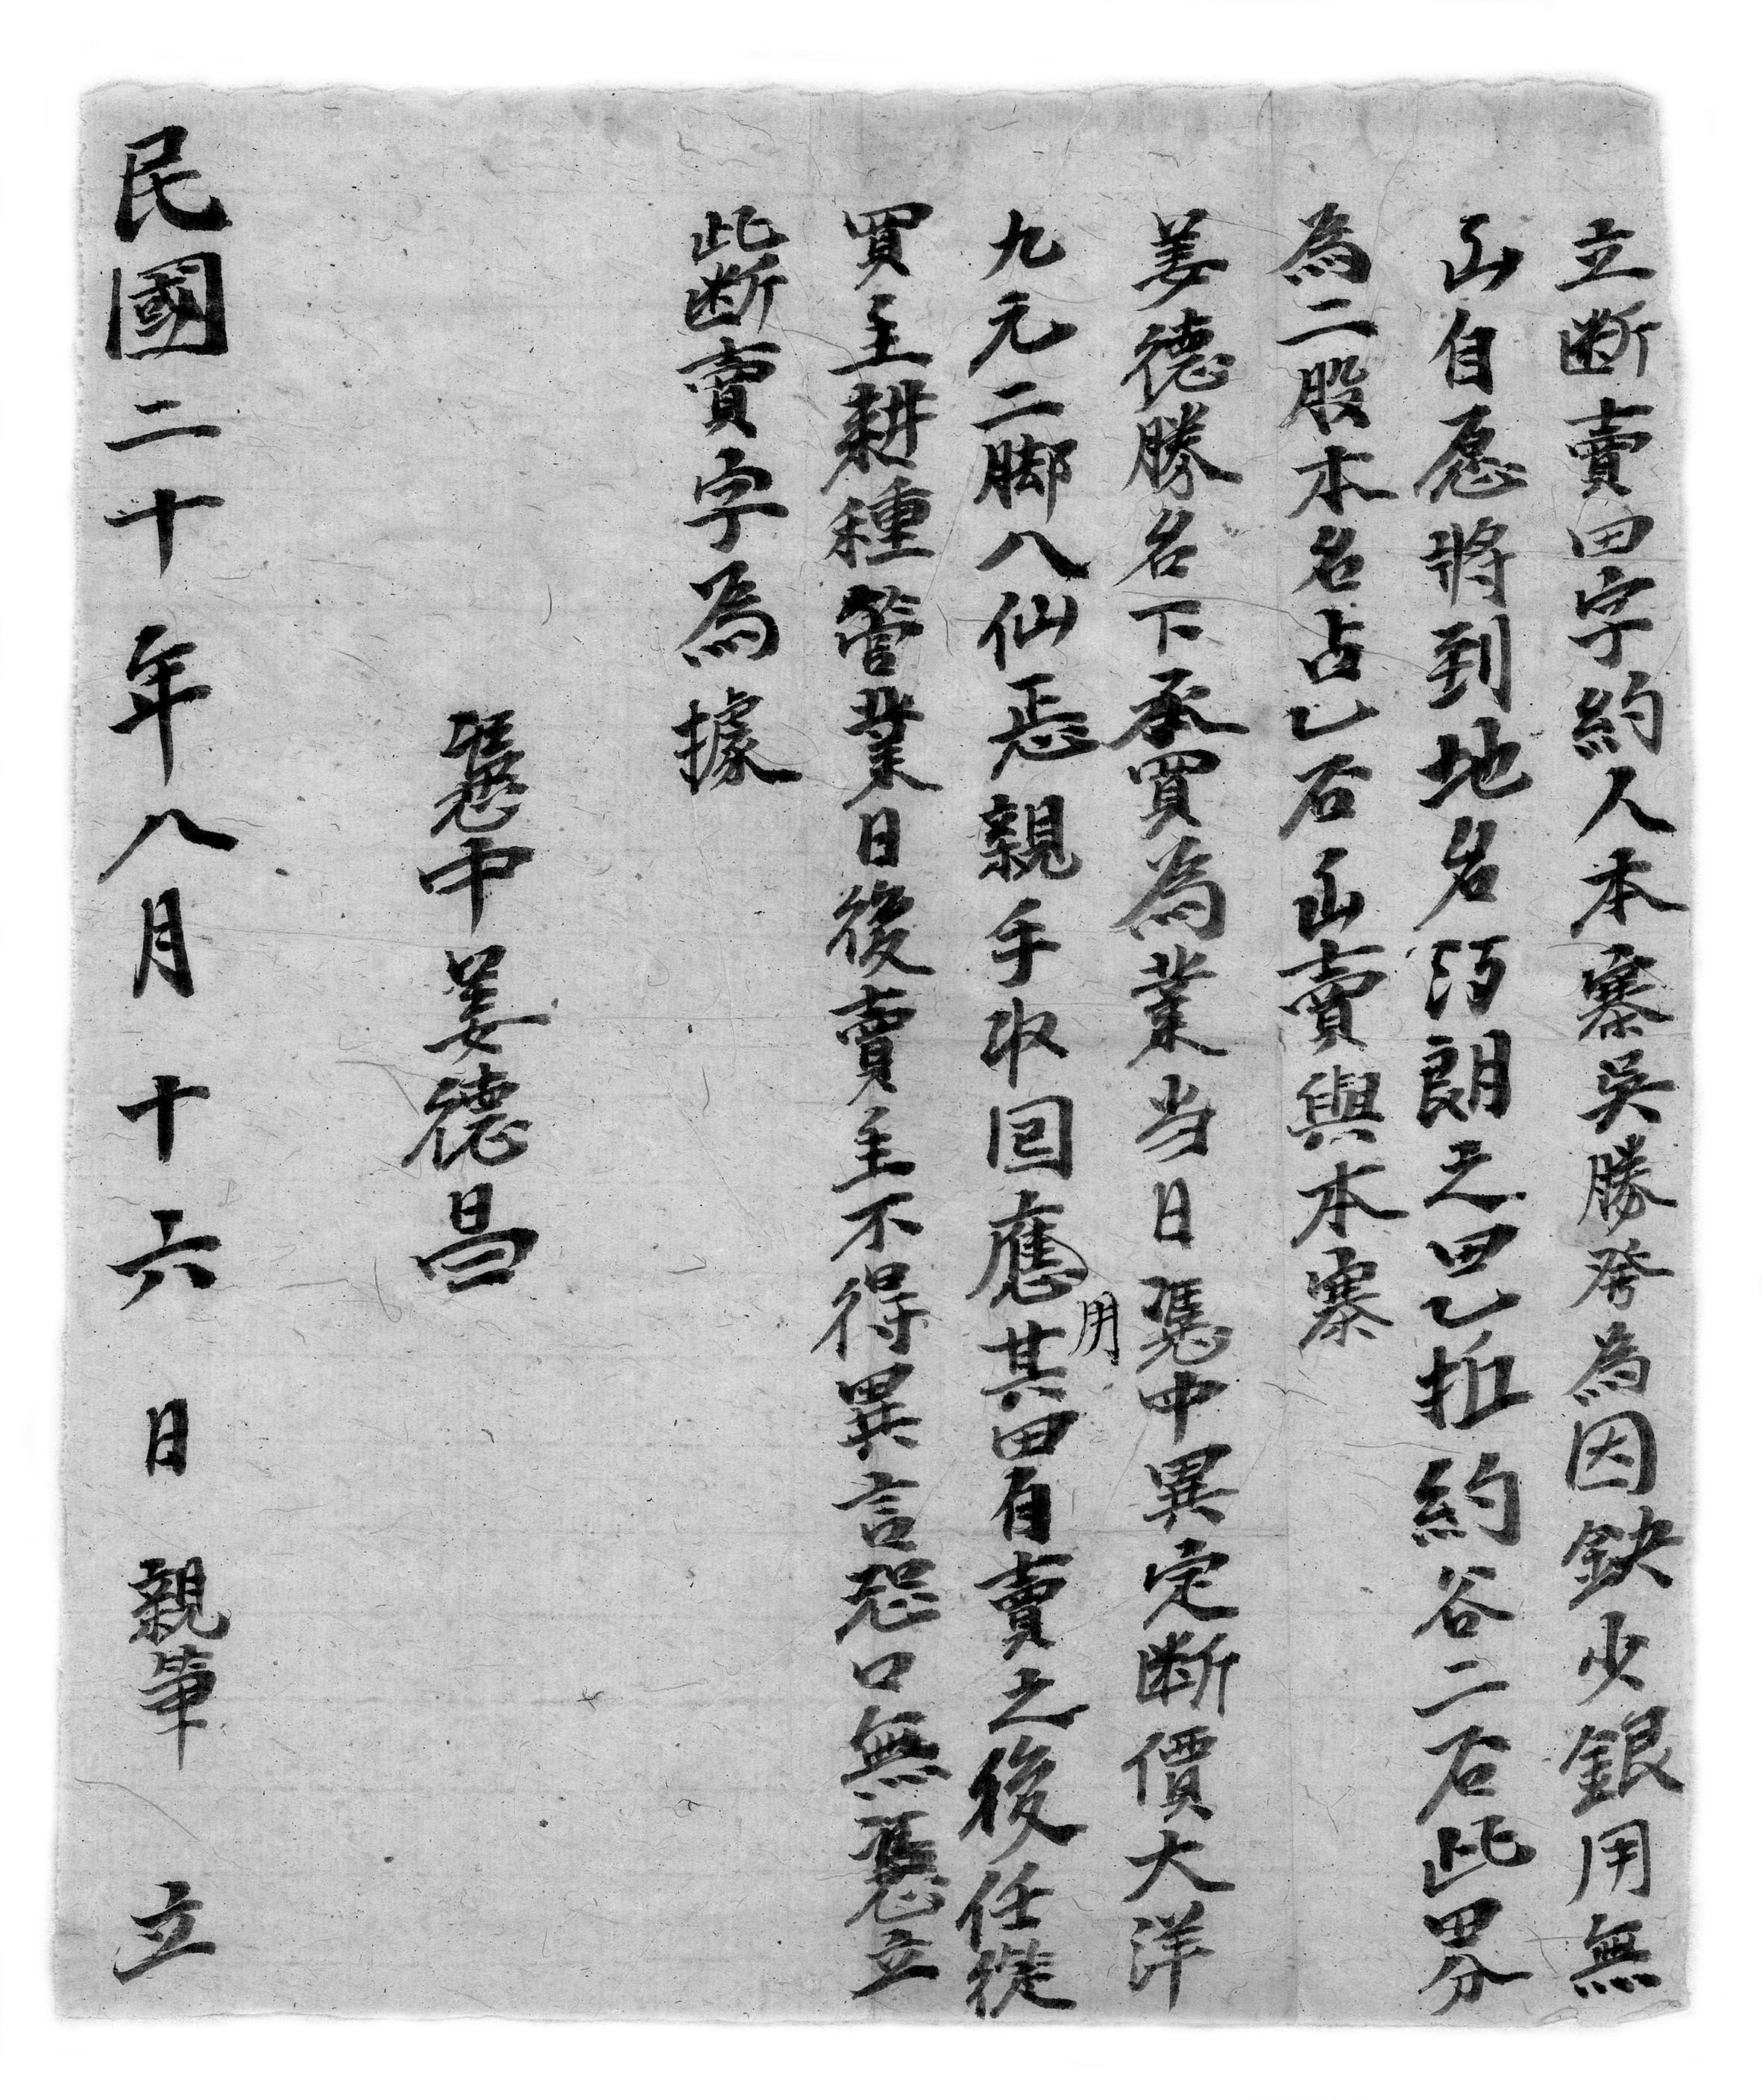 立断賣田字約人本寨吳勝發為因缺少銀用無
山自愿將到地名污朗之田乙坵約谷二石此田分
為二股本名占乙石山賣與本寨
姜德勝名下承買為業当日憑中異定断價大洋
九元二脚八仙悉親手收回應用其田自賣之後任從
買主耕種管業日後賣主不得異言恐口無憑立
此断賣字為據
憑中姜德昌
民國二十年八月十六日親筆立